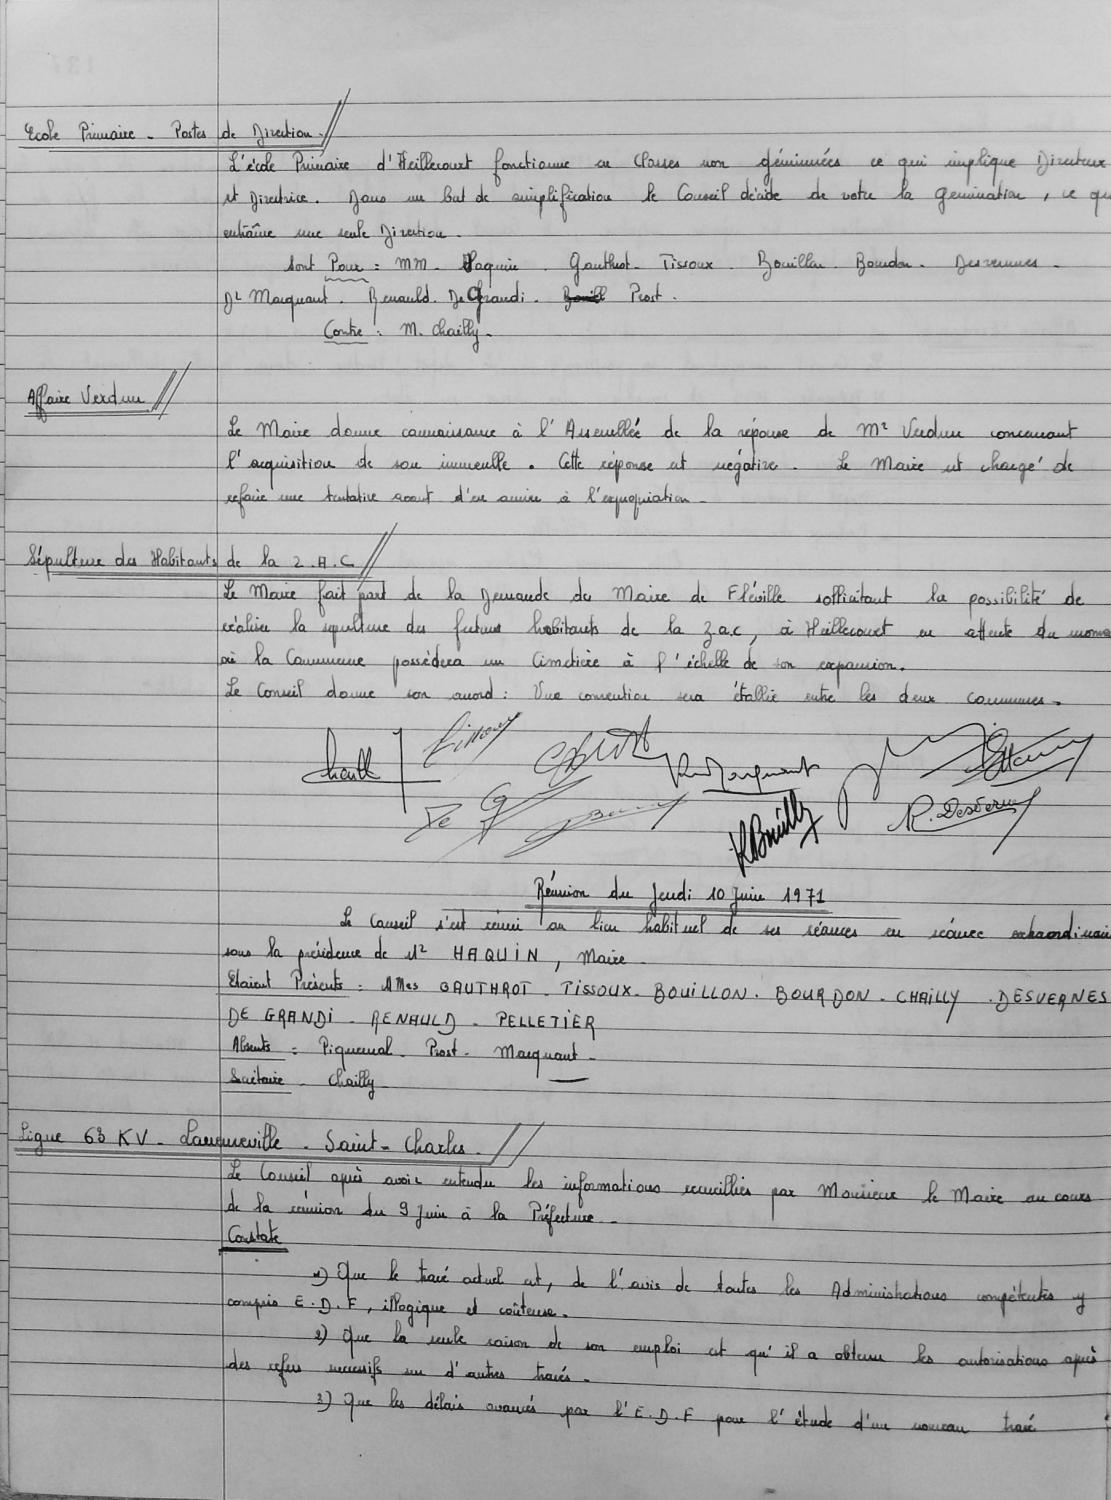 Ecole Primaire - Postes de Direction -
L'école Primaire d'Heillecourt fonctionne en Classes non géminées ce qui implique Directeur
et Directrice. Dans un but de simplification le Conseil décide de voter la gemination, ce qui
entraîne une seule Direction.
Sont Pour : MM. Haquin. Gauthrot. Tissoux. Bouillon. Bourdon. Desvernes.
Dr Marquant. Renauld. De Grandi. Prost.
Contre : M. Chailly.
Affaire Verdun
Le Maire donne connaissance à l'Assemblée de la réponse de Mr Verdun concernant
l'acquisition de son immeuble. Cette réponse est négative. Le Maire est chargé de
refaire une tentative avant d'en arriver à l'expropriation.
Sépulture des Habitants de la Z.A.C
Le Maire fait part de la Demande du Maire de Fléville sollicitant la possibilité de
réaliser la sépulture des futurs habitants de la Z.a.c, à Heillecourt en attente du
où la Commune possèdera un Cimetière à l'échelle de son expansion.
Le Conseil donne son accord : Une convention sera établie entre les deux communes.
R. Desvernes
Réunion du Jeudi 10 Juin 1971
Le Conseil s'est réuni au lieu habituel de ses séances en séance extraordinaire
sous la présidence de Mr HAQUIN, Maire
Etaient Présents : MMes GAUTHROT - TISSOUX - BOUILLON. BOURDON - CHAILLY. DESVERNES
DE GRANDI - RENAULD - PELLETIER
Absents : Piquemal - Prost - Marquant -
Secrétaire - Chailly
Ligne 63 KV - Laneuveville - Saint-Charles.
Le Conseil après avoir entendu les informations recueillies par Monsieur le Maire au cours
de la réunion du 9 Juin à la Préfecture -
Constate
1) Que le tracé actuel est, de l'avis de toutes les Administrations compétentes y
compris E.D.F, illogique et coûteuse.
2) Que la seule raison de son emploi est qu'il a obtenu les autorisations après
des refus successifs sur d'autres tracés.
3) Que les délais avancés par l'E.D.F pour l'étude d'un nouveau tracé